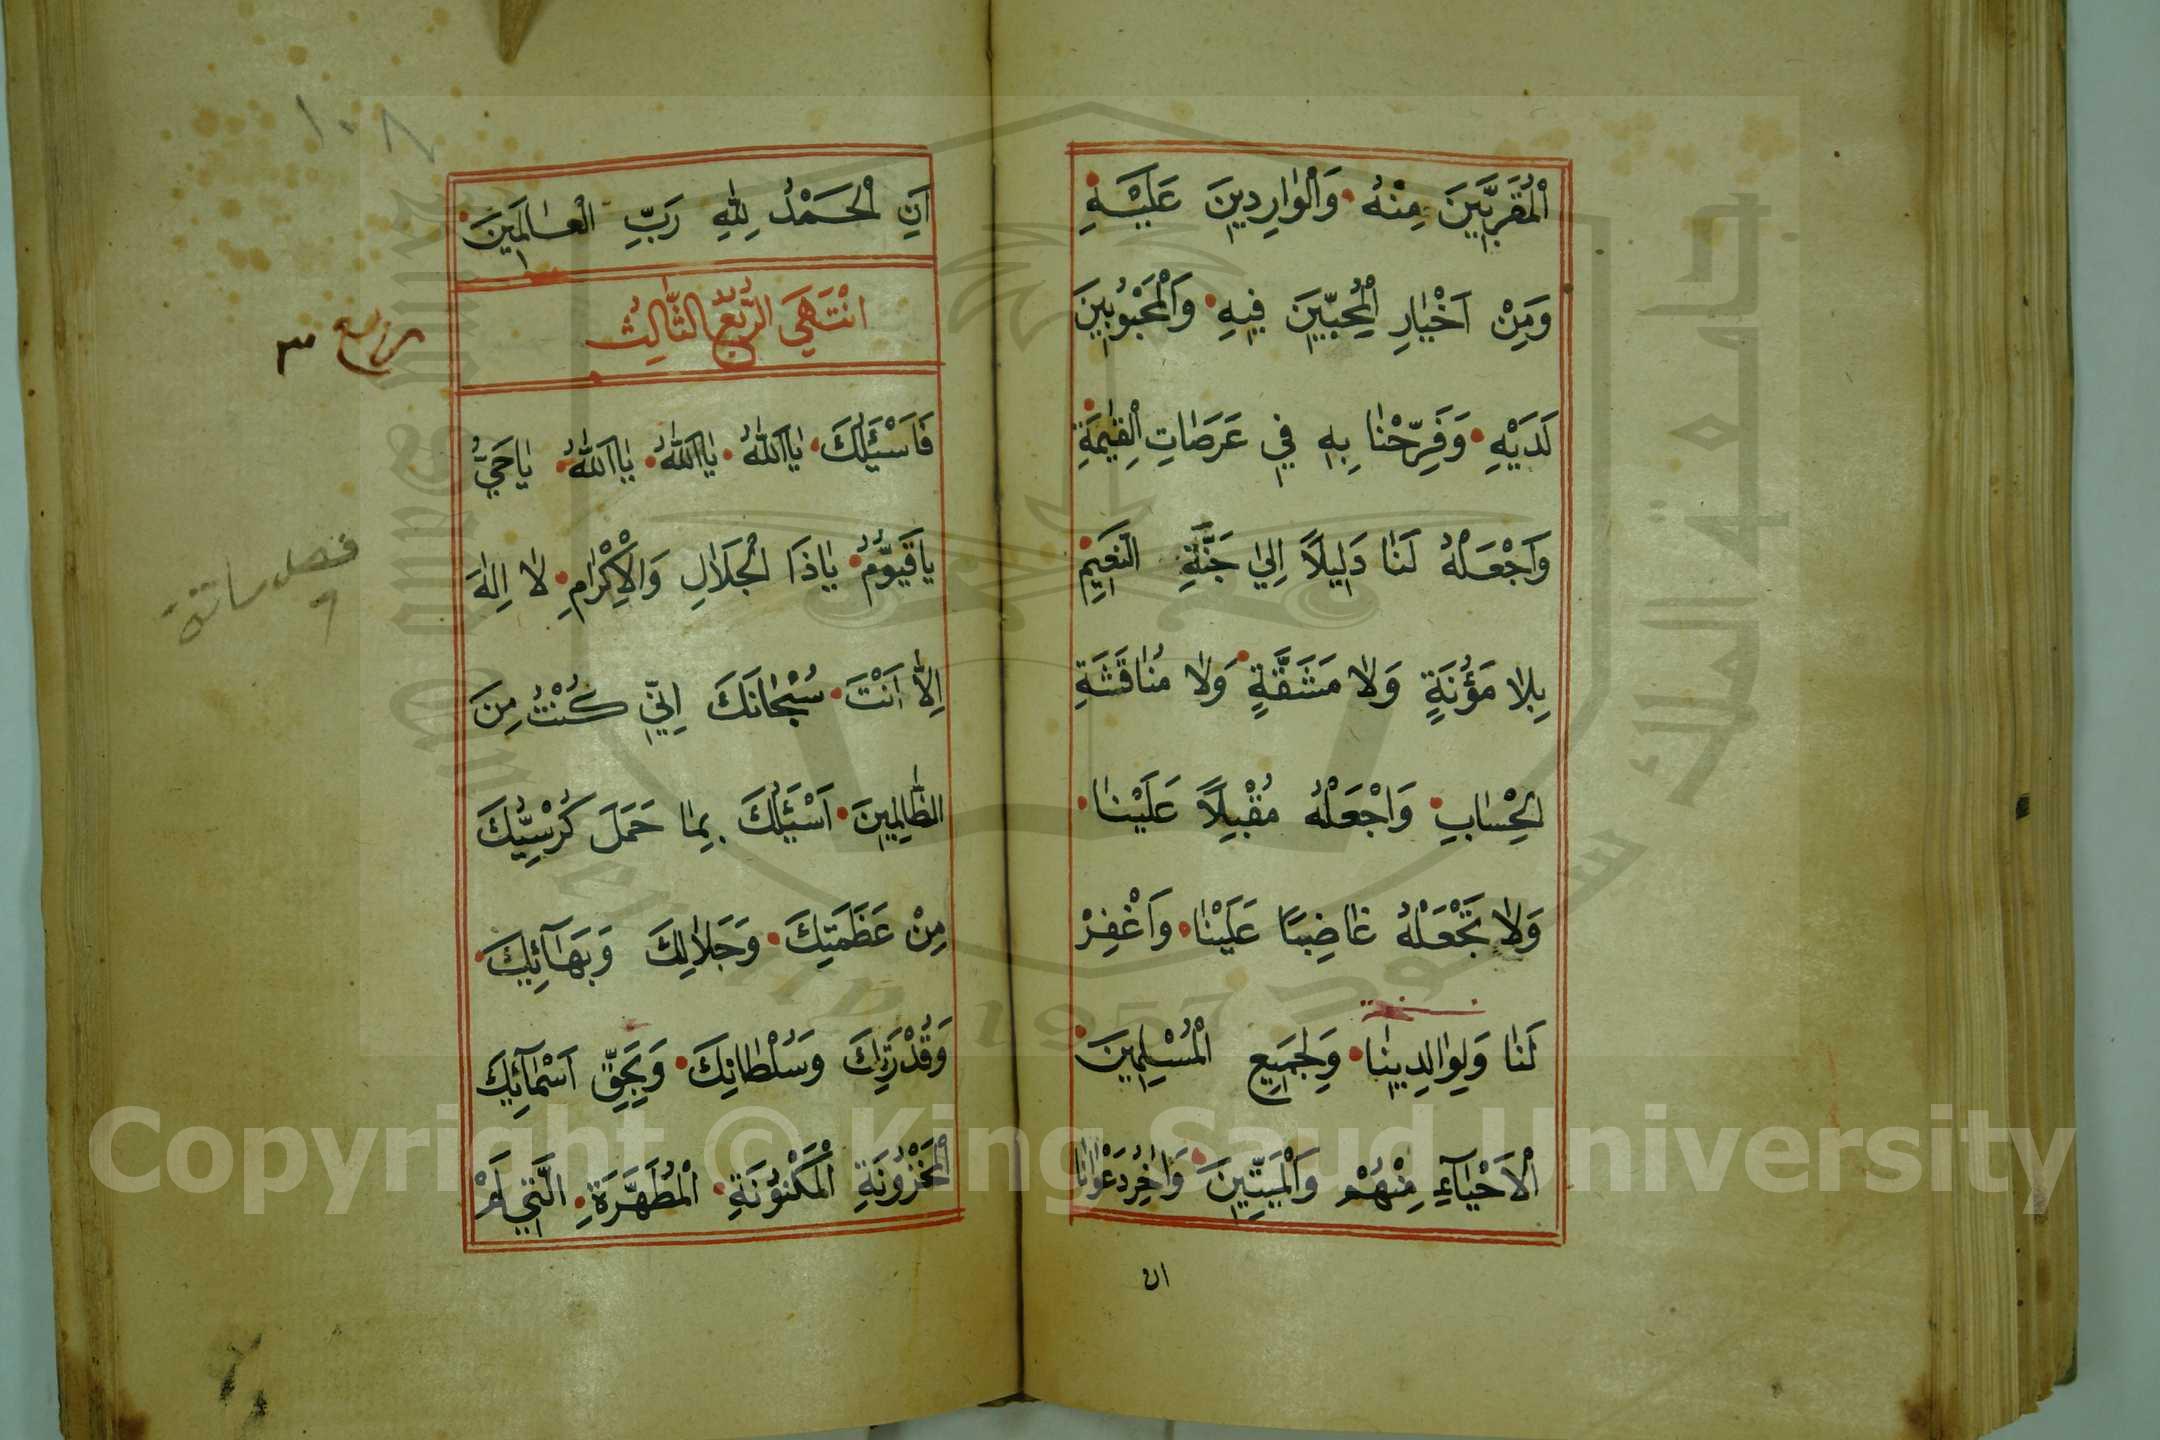 الْمُقَرَّبِينَ مِنْهُ وَالْوَارِدِينَ عَلَيْهِ
وَمِنْ اَخْيَارِ الْمُحِبِّينَ فِيهِ وَالْمَحْبُوبِينَ
لَدَيْهِ وَفَرِّحْنَا بِهِ فِي عَرَصَاتِ الْقِيٰمَةِ
وَاَجْعَلْهُ لَنَا دَلِيلًا اِلَي جَنَّةِ النَّعِيمِ
بِلَا مَؤُنَةٍ وَلَا مَشَقَّةٍ وَلَا مُنَاقَشَةِ
الْحِسَابِ وَاجْعَلْهُ مُقْبِلًا عَلَيْنَا
وَلَا تَجْعَلْهُ غَاضِبًا عَلَيْنَا وَاَغْفِرْ
لَنَا وَلِوَالِدِينَا وَلِجَمِيعِ الْمُسْلِمِينَ
الْاَحْيَآءِ مِنْهُمْ وَالْمَيِّتِينَ وَاٰخِرُ دَعْوَانَا
ان
١٠٨
اَنِ الْحَمْدُ لِلّٰهِ رَبِّ الْعَالَمِينَ
انْتَهَي الرُّبُعُ الثَّالِثُ
٣
فَاَسْئَلُكَ يَا اَللّٰهُ يَا اَللّٰهُ يَا اَللّٰهُ يَا حَيُّ
يَا قَيُّومُ يَا ذَا الْجَلَالِ وَالْاِكْرَامِ لَا اِلٰهَ
اِلَّا اَنْتَ سُبْحَانَكَ اِنِّي كُنْتُ مِنَ
الظَّالِمِينَ اَسْئَلُكَ بِمَا حَمَلَ كُرْسِيُّكَ
مِنْ عَظَمَتِكَ وَجَلَالِكَ وَبَهَآئِكَ
وَقُدْرَتِكَ وَسُلْطَانِكَ وَبِحَقِّ اَسْمَآئِكَ
الْمَخْزُونَةِ الْمَكْنُونَةِ الْمُطَهَّرَةِ الَّتِي لَمْ
Copyright © King Saud University
1957